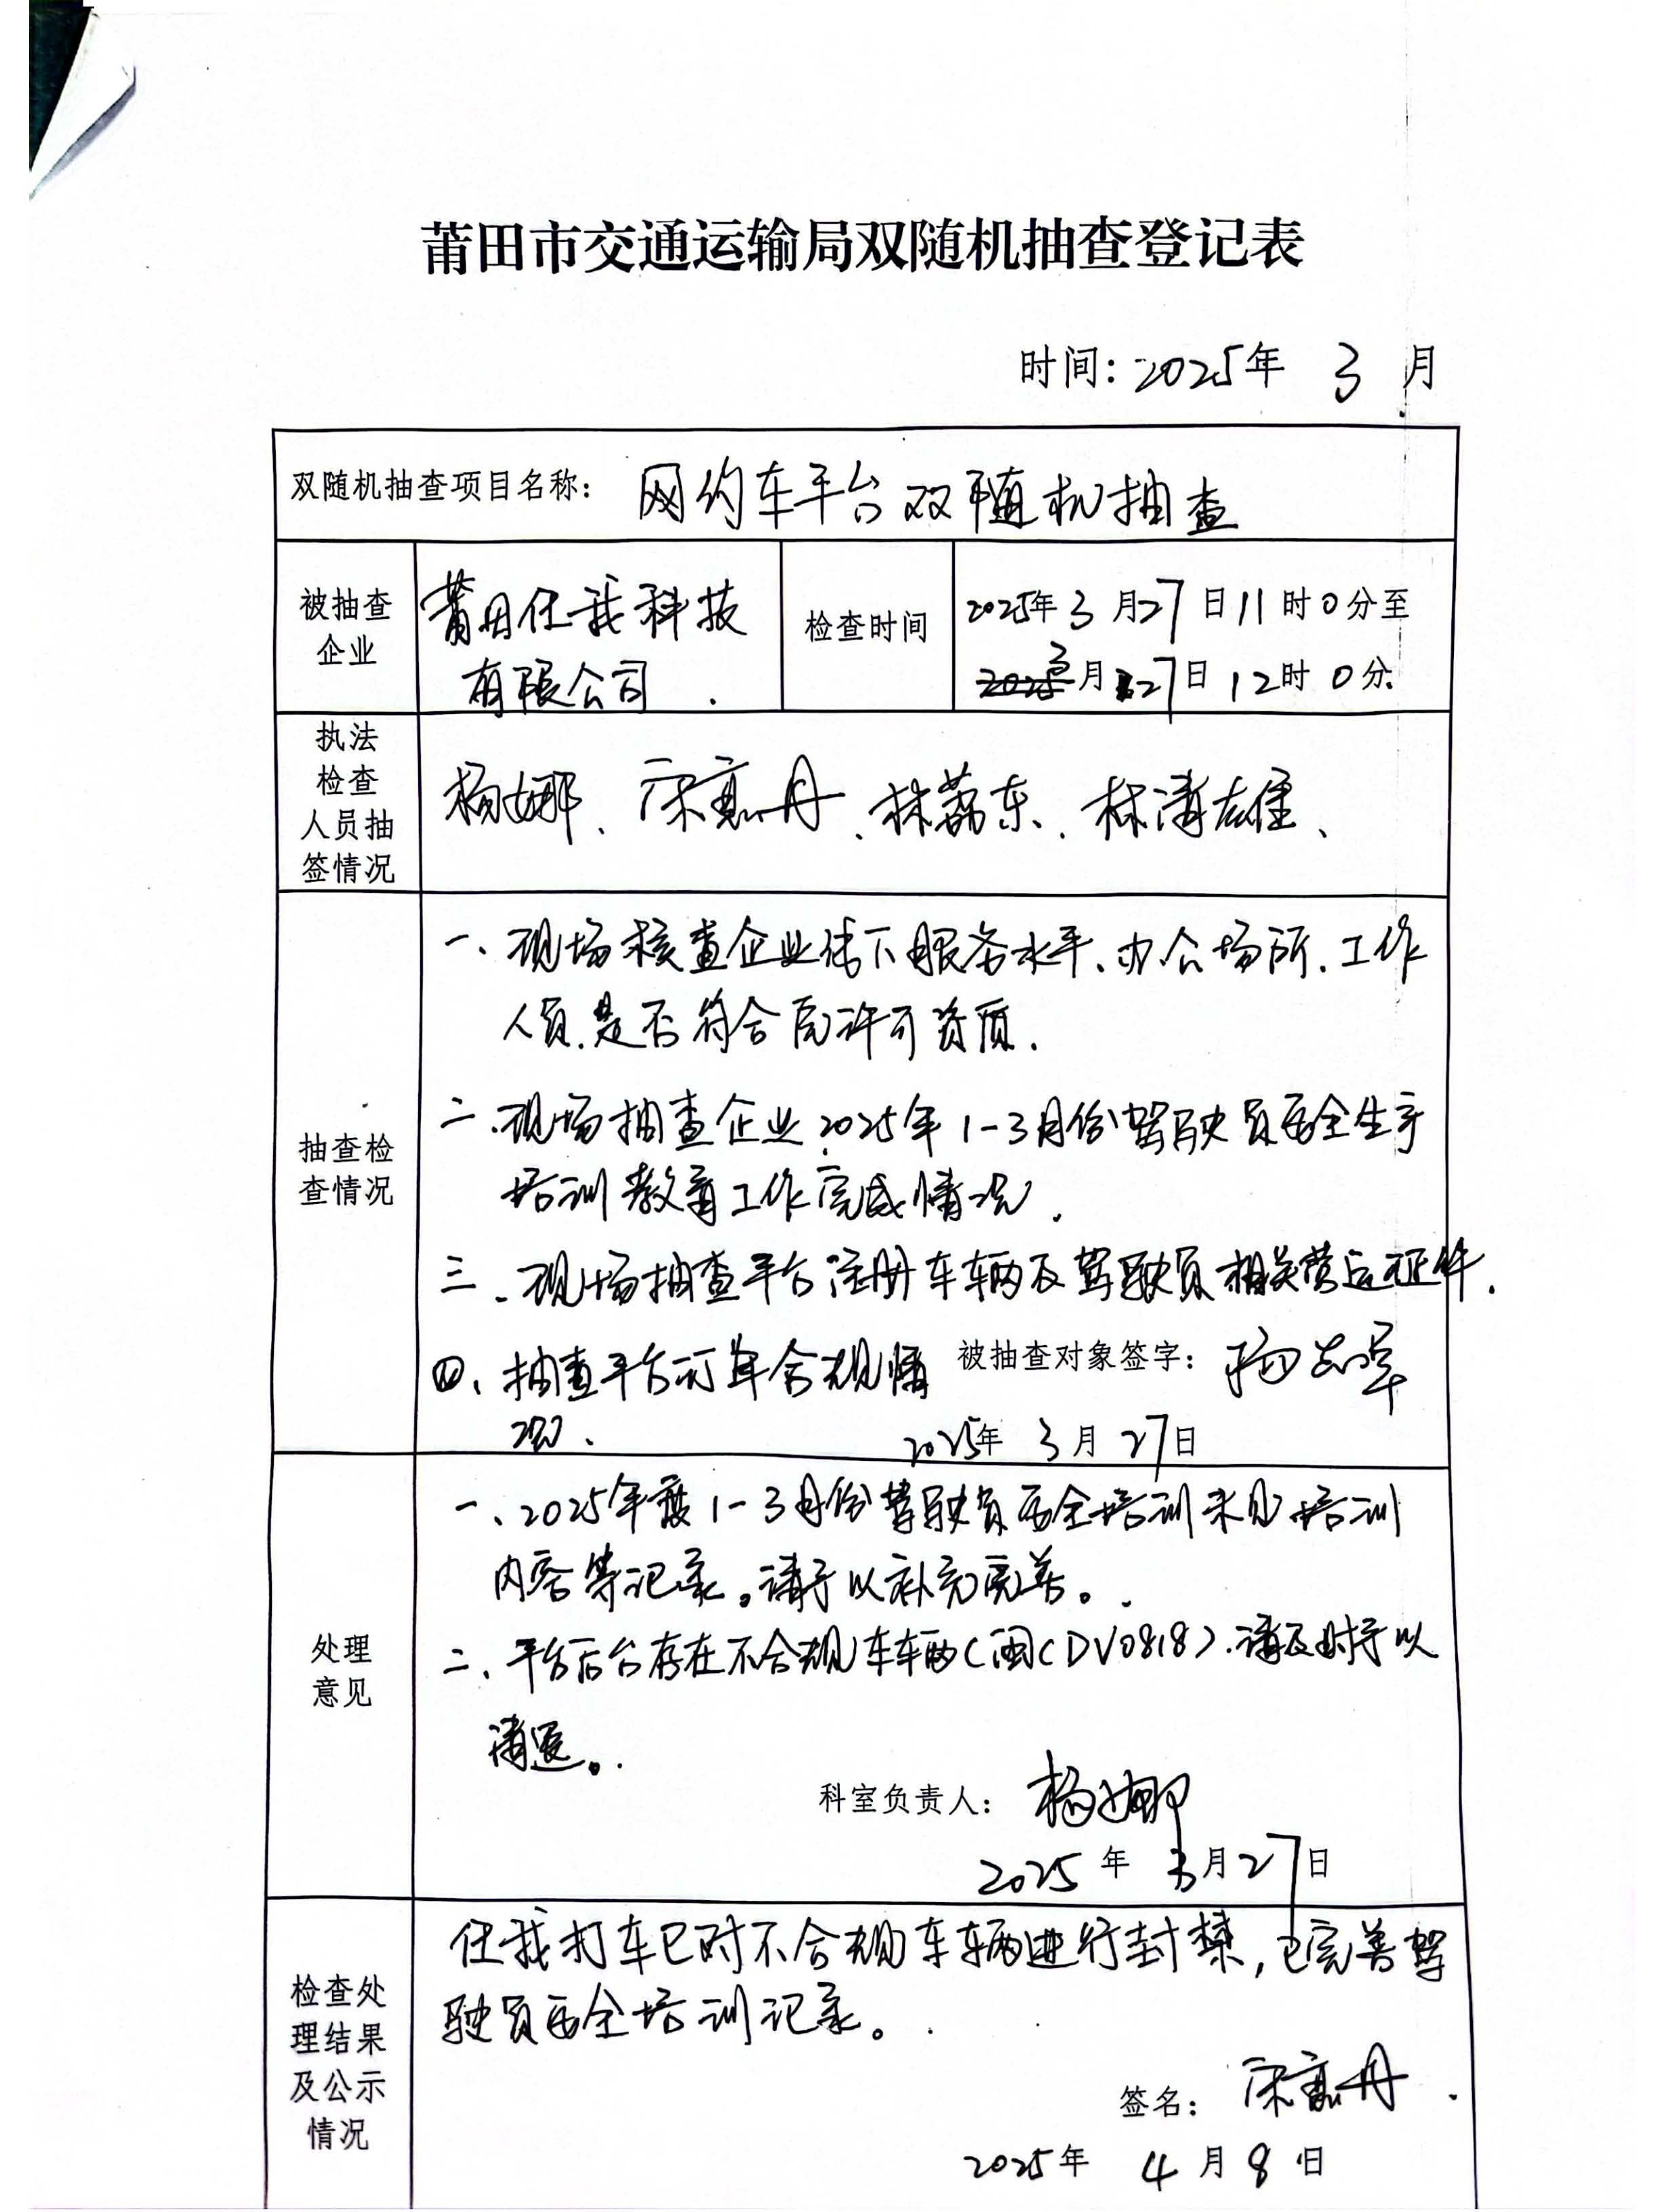 莆田市交通运输局双随机抽查登记表
时间：2025年 3 月
双随机抽查项目名称： 网约车平台双随机抽查
被抽查
企业
莆田任我科技
有限公司.
检查时间
2025年3月27日11时0分至
3月27日12时0分.
执法
检查
人员抽
签情况
杨娜、宋嘉丹、林荔东、林清雄、
抽查检
查情况
一、现场核查企业线下服务水平、办公场所、工作
人员是否符合原许可资质.
二、现场抽查企业2025年1-3月份驾驶员安全生产
培训教育工作完成情况.
三、现场抽查平台注册车辆及驾驶员相关营运证件.
四、抽查平台订单合规情
况.
被抽查对象签字：
2025年 3月 27日
处理
意见
一、2025年度1-3月份驾驶员安全培训未见培训
内容等记录。请予以补充完善。
二、平台后台存在不合规车辆（闽CDV0818）.请及时予以
清退。
科室负责人： 杨娜
2025 年 3月27日
检查处
理结果
及公示
情况
任我打车已对不合规车辆进行封禁，已完善驾
驶员安全培训记录。
签名： 宋嘉丹
2025年 4 月 8 日